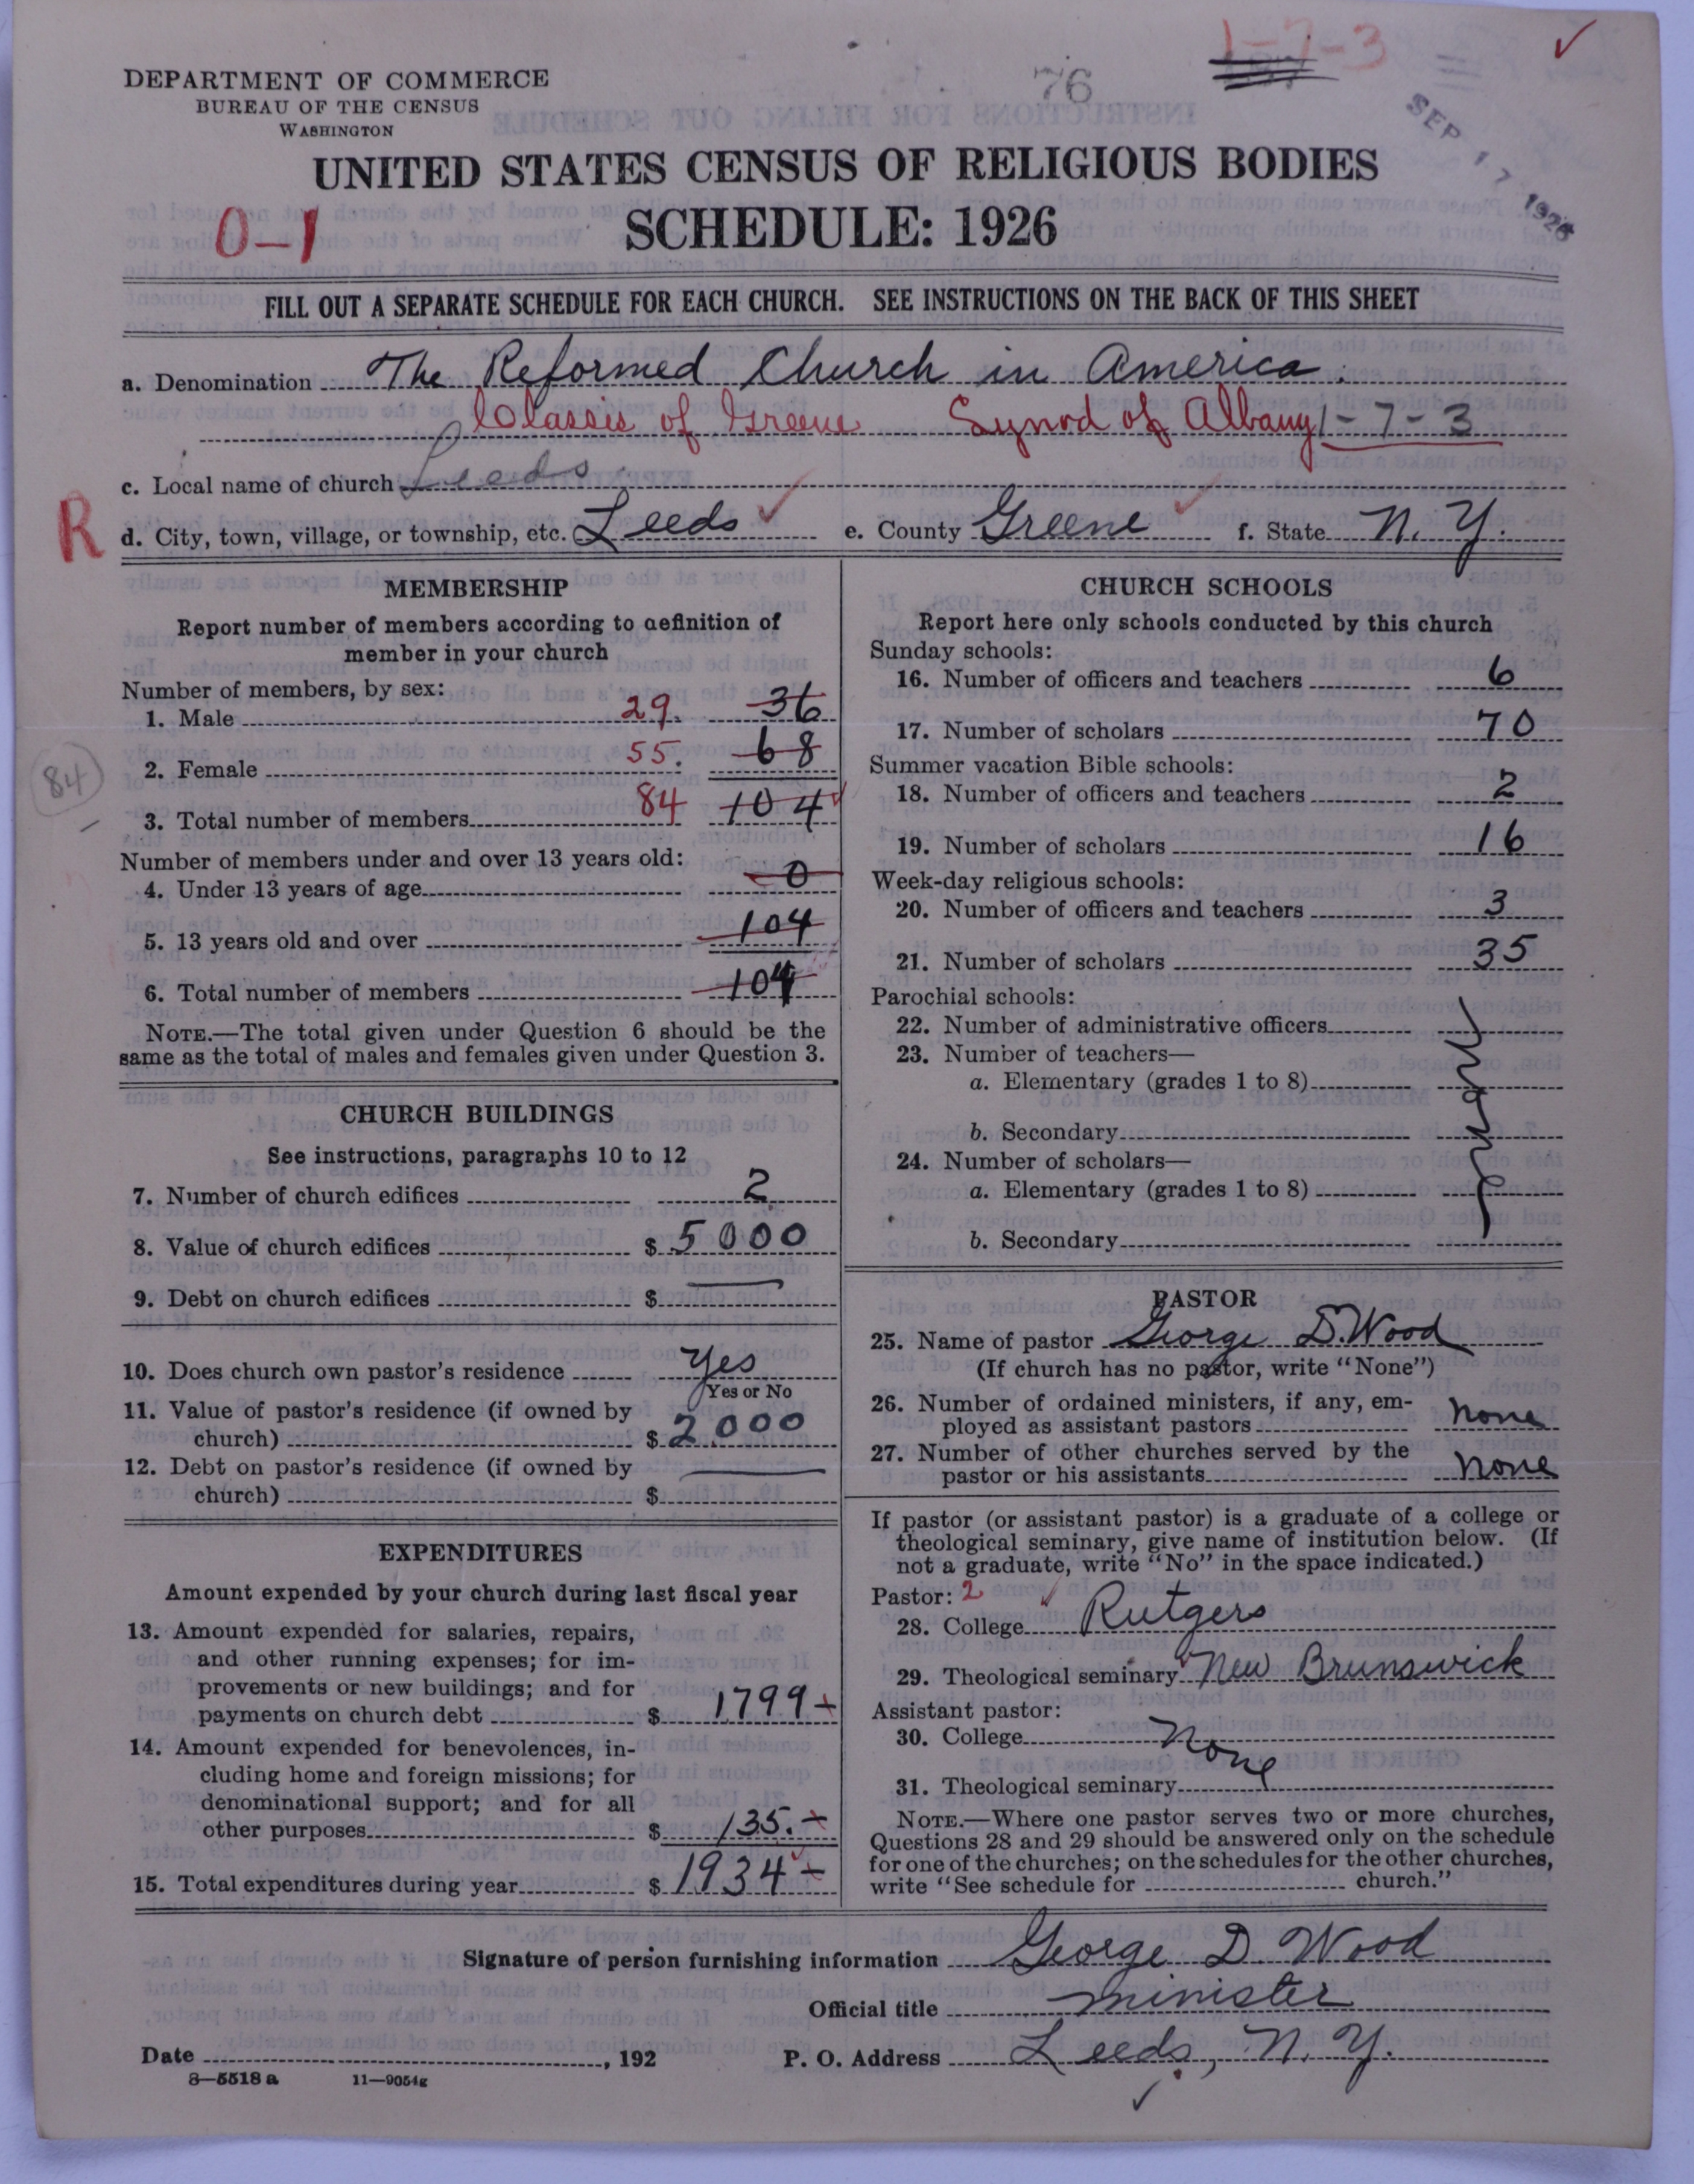 1-7-3
76
DEPARTMENT OF COMMERCE
BUREAU OF THE CENSUS
WASHINGTON
SEP 17 1926
UNITED STATES CENSUS OF RELIGIOUS BODIES
0-1
SCHEDULE: 1926
FILL OUT A SEPARATE SCHEDULE FOR EACH CHURCH. SEE INSTRUCTIONS ON THE BACK OF THIS SHEET
a. Denomination The Reformed Church in America.
Classis of Greene Synod of Albany 1-7-3
c. Local name of church Leeds
R
d. City, town, village, or township, etc. Leeds e. County Greene f. State N. Y.
MEMBERSHIP
Report number of members according to definition of
member in your church
Number of members, by sex:
1. Male 29. 36
2. Female 55. 68
84
3. Total number of members 84 104
Number of members under and over 13 years old:
4. Under 13 years of age 0
5. 13 years old and over 104
6. Total number of members 104
NOTE.—The total given under Question 6 should be the
same as the total of males and females given under Question 3.
CHURCH BUILDINGS
See instructions, paragraphs 10 to 12
7. Number of church edifices 2
8. Value of church edifices $ 5000
9. Debt on church edifices $ —
10. Does church own pastor's residence Yes
Yes or No
11. Value of pastor's residence (if owned by
church) $ 2000
12. Debt on pastor's residence (if owned by
church) $ —
EXPENDITURES
Amount expended by your church during last fiscal year
13. Amount expended for salaries, repairs,
and other running expenses; for im-
provements or new buildings; and for
payments on church debt $ 1799
14. Amount expended for benevolences, in-
cluding home and foreign missions; for
denominational support; and for all
other purposes $ 135.
15. Total expenditures during year $ 1934
CHURCH SCHOOLS
Report here only schools conducted by this church
Sunday schools:
16. Number of officers and teachers 6
17. Number of scholars 70
Summer vacation Bible schools:
18. Number of officers and teachers 2
19. Number of scholars 16
Week-day religious schools:
20. Number of officers and teachers 3
21. Number of scholars 35
Parochial schools:
22. Number of administrative officers
23. Number of teachers—
a. Elementary (grades 1 to 8)
b. Secondary
24. Number of scholars—
a. Elementary (grades 1 to 8)
b. Secondary
PASTOR
25. Name of pastor George D. Wood
(If church has no pastor, write "None")
26. Number of ordained ministers, if any, em-
ployed as assistant pastors none
27. Number of other churches served by the
pastor or his assistants none
If pastor (or assistant pastor) is a graduate of a college or
theological seminary, give name of institution below. (If
not a graduate, write "No" in the space indicated.)
Pastor: 2
28. College Rutgers
29. Theological seminary New Brunswick
Assistant pastor:
30. College None
31. Theological seminary
NOTE.—Where one pastor serves two or more churches,
Questions 28 and 29 should be answered only on the schedule
for one of the churches; on the schedules for the other churches,
write "See schedule for church."
Signature of person furnishing information George D Wood
Official title minister
Date , 192 P. O. Address Leeds, N. Y.
8—5518a 11—9054g